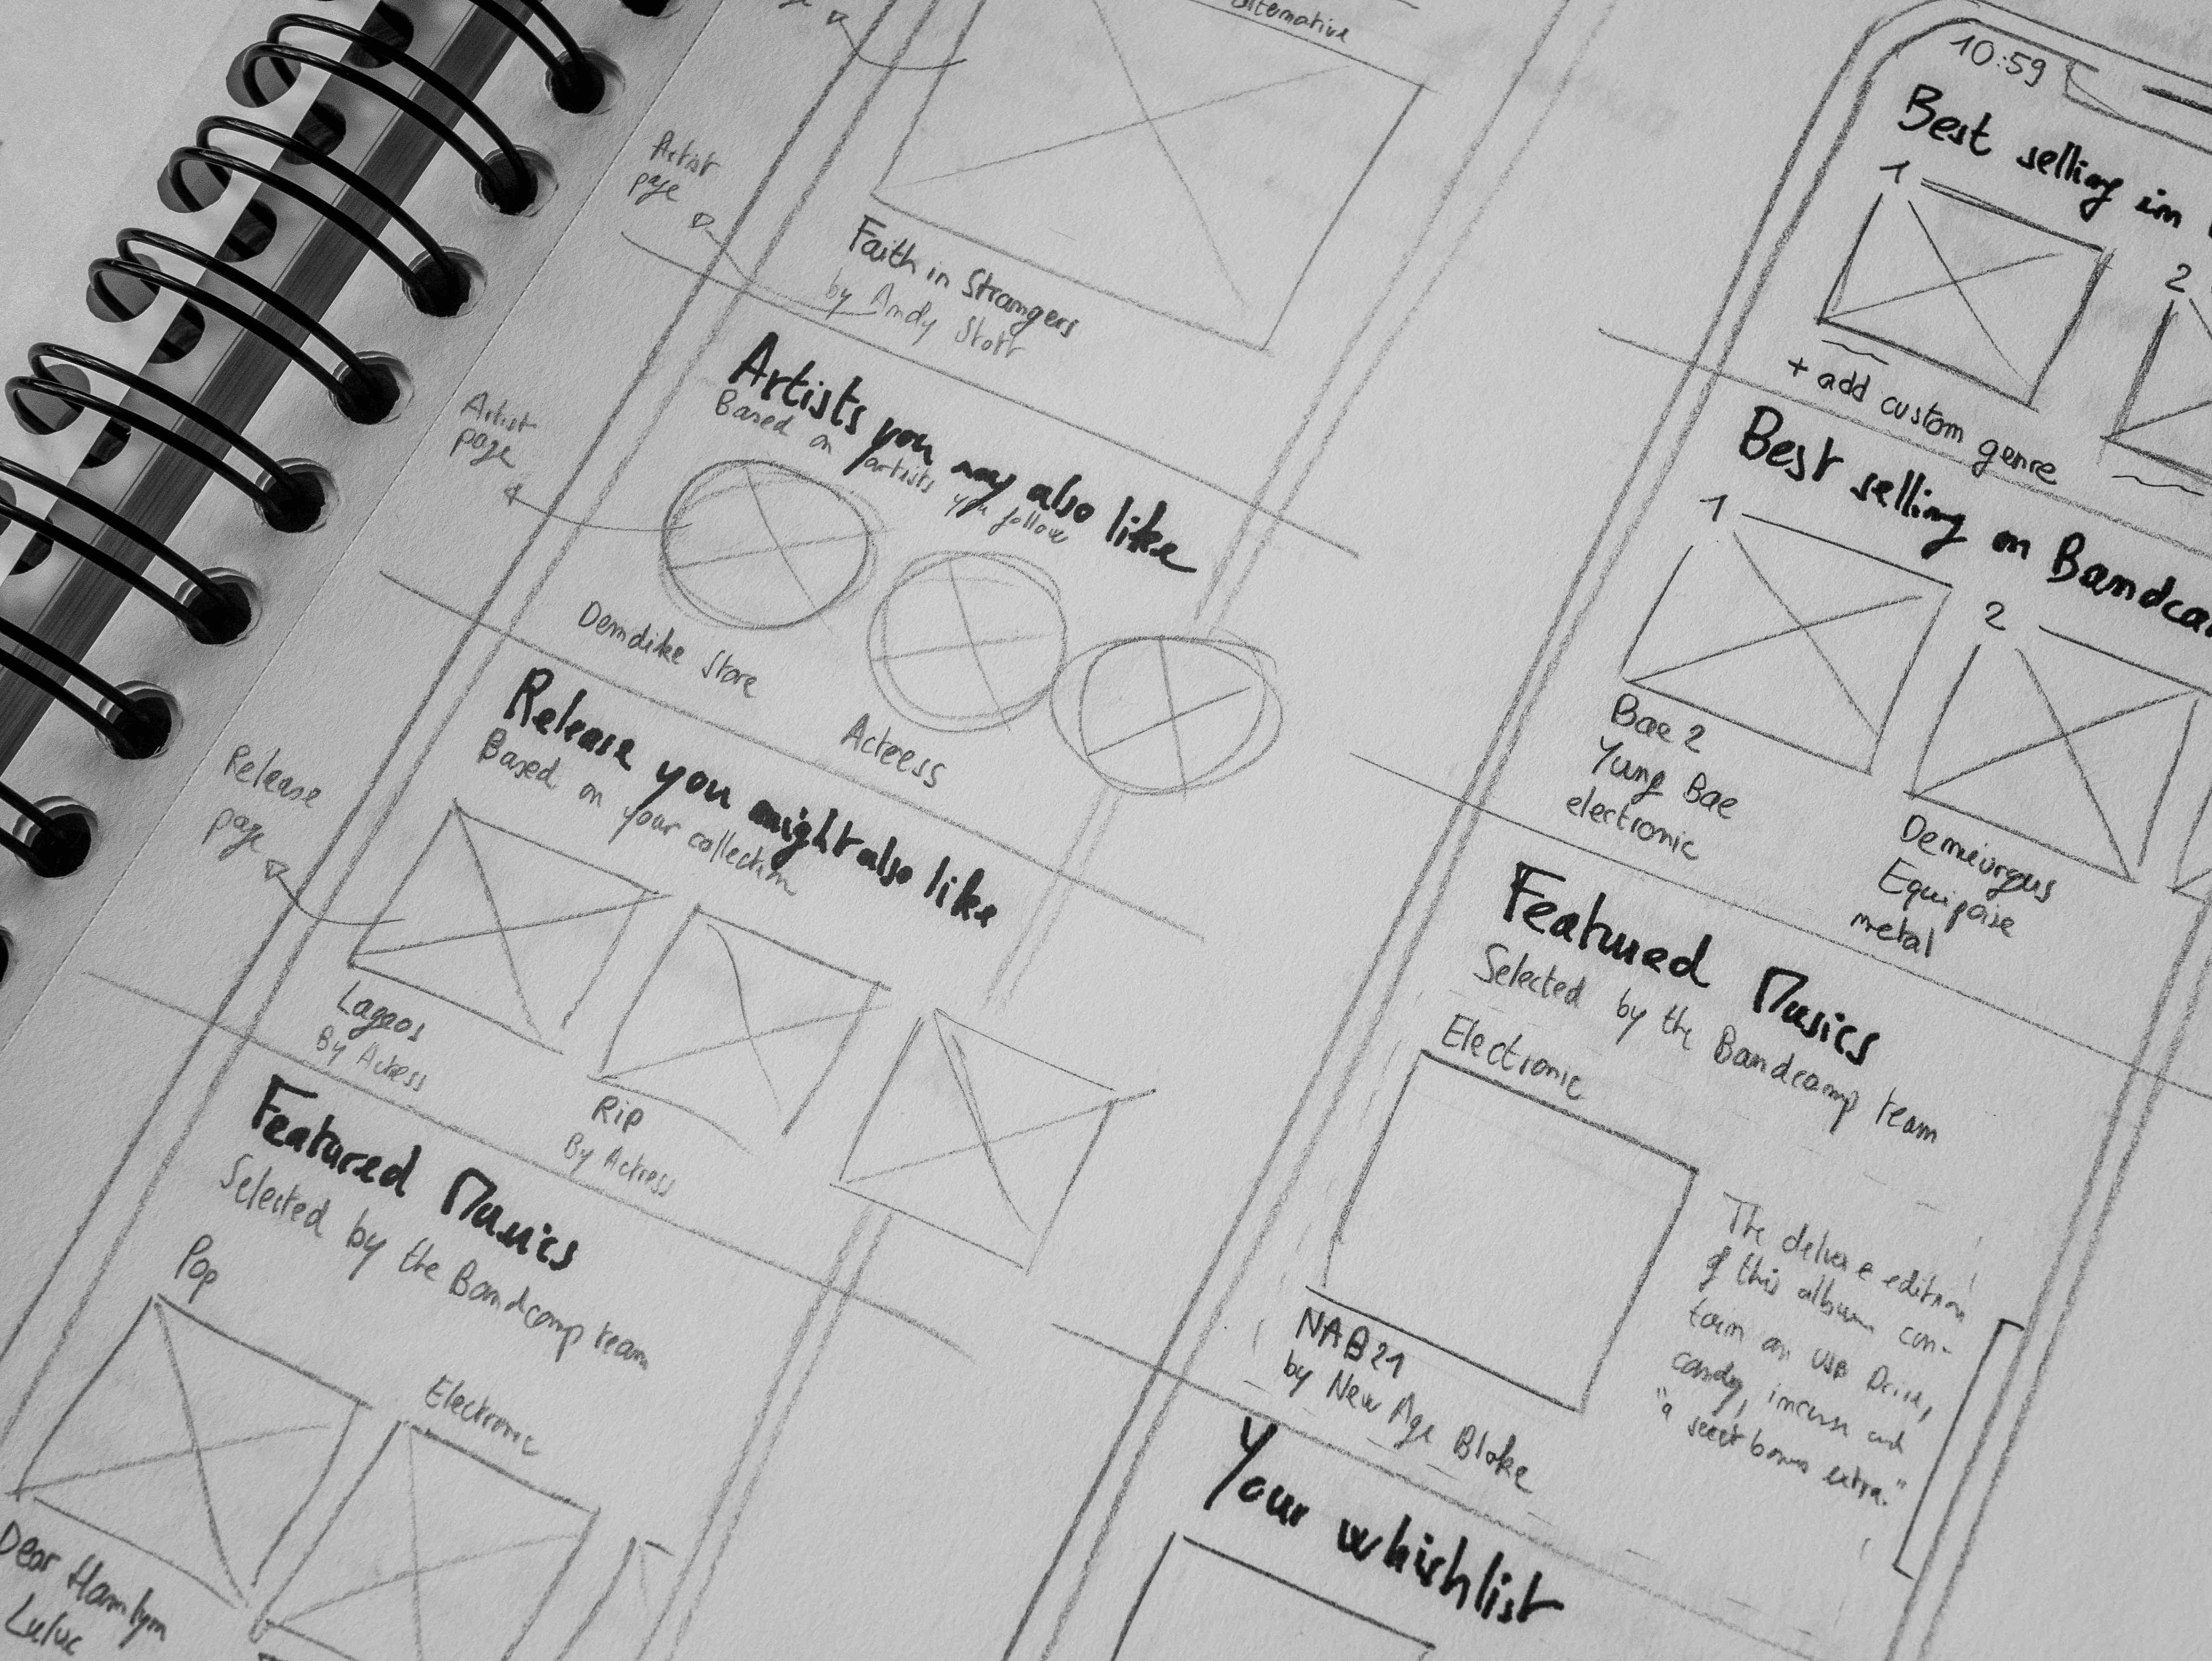 alternative
Artist
page
Faith in Strangers
by Andy Stott
Artists you may also like
Based on artists you follow
Artist
page
Demdike Store
Acteess
Release you might also like
Based on your collection
Release
page
Lageos
By Actress
Rip
By Actress
Featured Musics
Selected by the Bandcamp team
Pop
Electronic
Dear Hamlyn
Luluc
10:59
Best selling in
1
2
+ add custom genre
Best selling on Bandca
1
2
Bae 2
Yung Bae
electronic
Demiurgus
Equipoise
metal
Featured Musics
Selected by the Bandcamp team
Electronic
The deluxe edition
of this album con-
tain an USB Drive,
candy, incense and
"a secret bonus extra."
NAB21
by New Age Bloke
Your whishlist